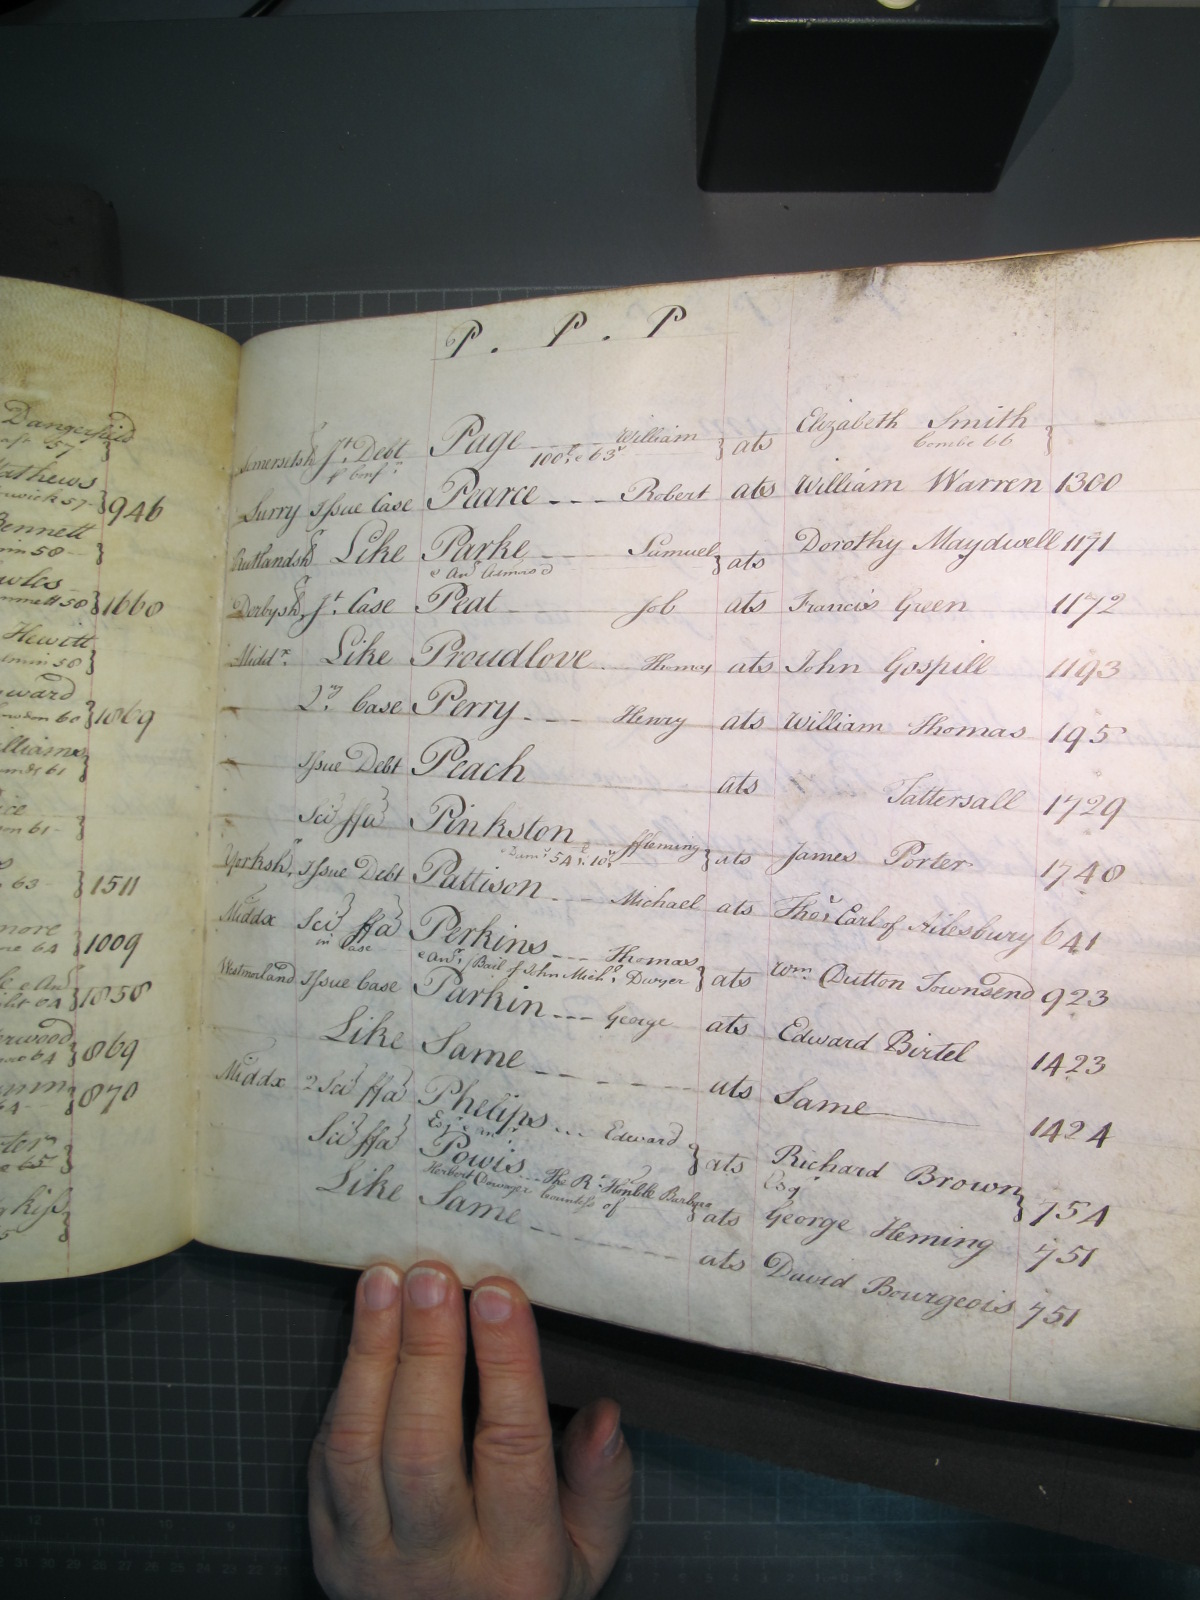 Dangerfield
57
Mathews
57 } 946
Bennett
58 }
58 } 1660
Hewitt
58 }
60 } 1069
Williams
61 }
61 }
63 } 1511
64 } 1009
64 } 1858
64 } 869
870
65 }
P. P. P
Somersetsh Jt. Debt Page William } ats Elizabeth Smith }
100£ & 63s Combe 66
Surry Issue Case Pearce --- Robert ats William Warren 1300
Rutlandsh Like Parke --- Samuel } ats Dorothy Maydwell 1171
& anr.
Derbysh Jt. Case Peat Job ats Francis Green 1172
Middx. Like Proudlove Thomas ats John Gospill 1193
2nd Case Perry --- Henry ats William Thomas 195
Issue Debt Peach ats Tattersall 1729
Sci ffa Pinkston ffleming } ats James Porter 1740
Yorksh. Issue Debt Pattison --- Michael ats Thos. Earl of Ailesbury 641
Middx Sci ffa Perkins --- Thomas } ats Wm. Dutton Townsend 923
in Case & anr. Bail of John Michl. Dwyer
Westmorland Issue Case Parkin --- George ats Edward Birtel 1423
Like Same --- ats Same 1424
Middx 2 Sci ffa Phelips --- Edward } ats Richard Brown } 754
Esqr. Esqr
Sci ffa Powis --- The Rt. Honble Barbara } ats George Heming 751
Herbert Dowager Countess of
Like Same --- ats David Bourgeois 751